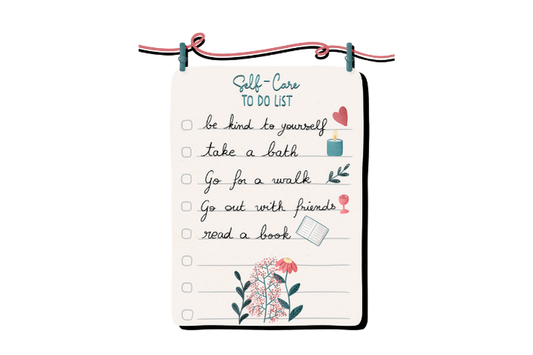 Self-Care
TO DO LIST
be kind to yourself
take a bath
Go for a walk
Go out with friends
read a book